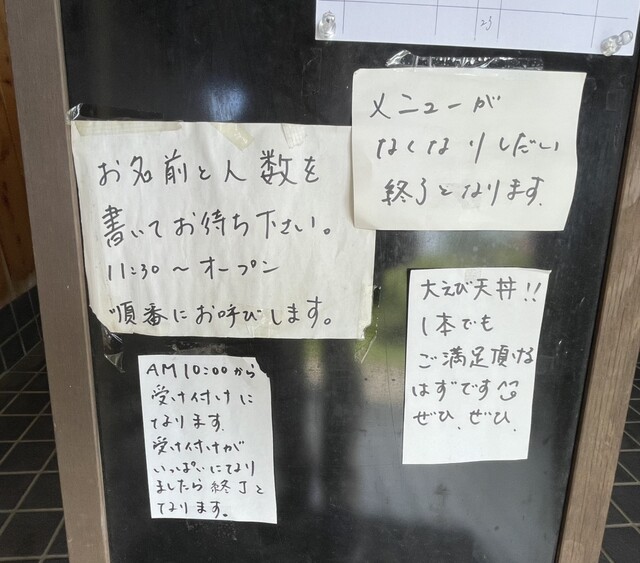 23
メニューが
なくなりしだい
終了となります。
お名前と人数を
書いてお待ち下さい。
11:30～オープン
順番にお呼びします。
大えび天丼!!
1本でも
ご満足頂ける
はずです
ぜひ、ぜひ、
AM10:00から
受け付けに
なります。
受け付けが
いっぱいになり
ましたら終了と
なります。